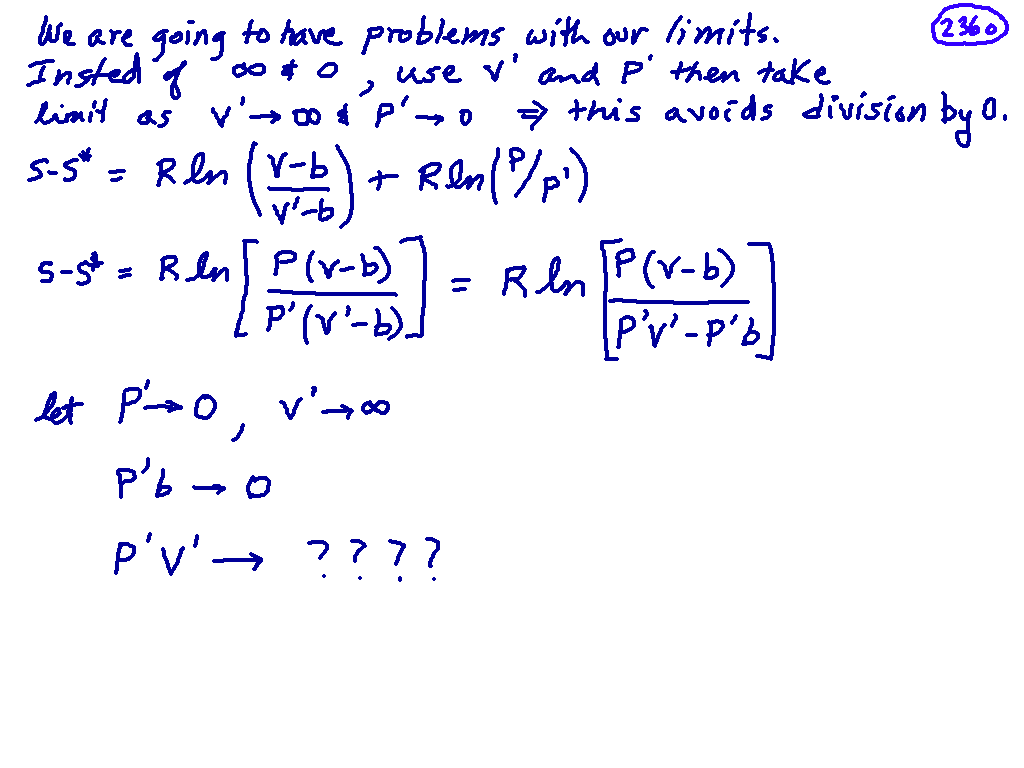 We are going to have problems with our limits. 2360
Insted of ∞ & 0, use v' and P' then take
limit as v' → ∞ & P' → 0 ⇒ this avoids division by 0.
s-s* = R ln ( (v-b) / (v'-b) ) + R ln (P/P')
s-s* = R ln [ P(v-b) / P'(v'-b) ] = R ln [ P(v-b) / P'v' - P'b ]
let P' → 0, v' → ∞
P'b → 0
P'v' → ? ? ? ?